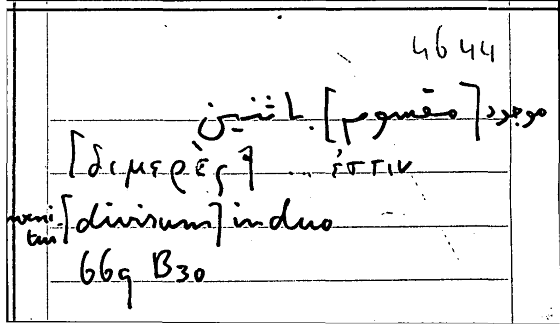 4644
موجود [مقسوم] باثنين
[διμερές] ... ἐστιν
inveni-
tur [divisum] in duo
669 B30